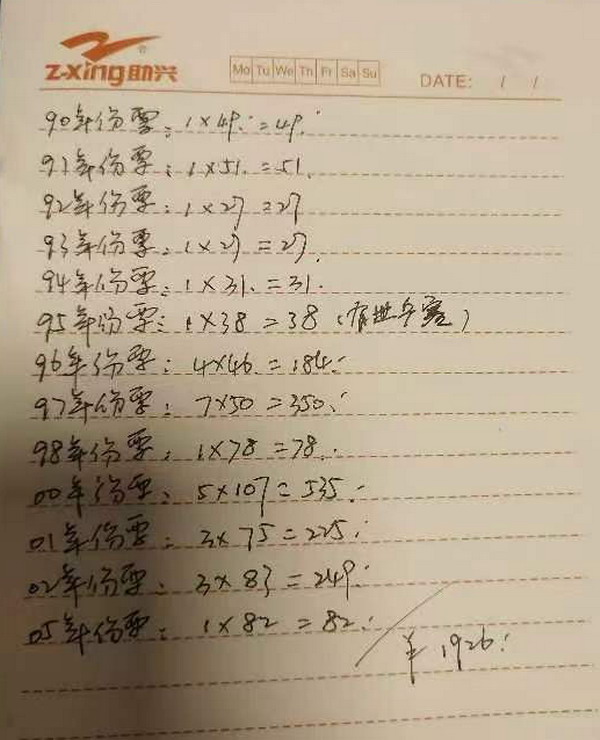 Z-xing助兴
Mo Tu We Th Fr Sa Su
DATE: / /
90年份票: 1×49.=49.
91年份票: 1×51.=51.
92年份票: 1×27=27
93年份票: 1×27=27.
94年份票: 1×31.=31.
95年份票: 1×38=38 (有世乒赛)
96年份票: 4×46.=184.
97年份票: 7×50=350.
98年份票: 1×78=78.
00年份票: 5×107=535.
01年份票: 3×75=225.
02年份票: 3×83=249.
05年份票: 1×82=82.
¥ 1926.